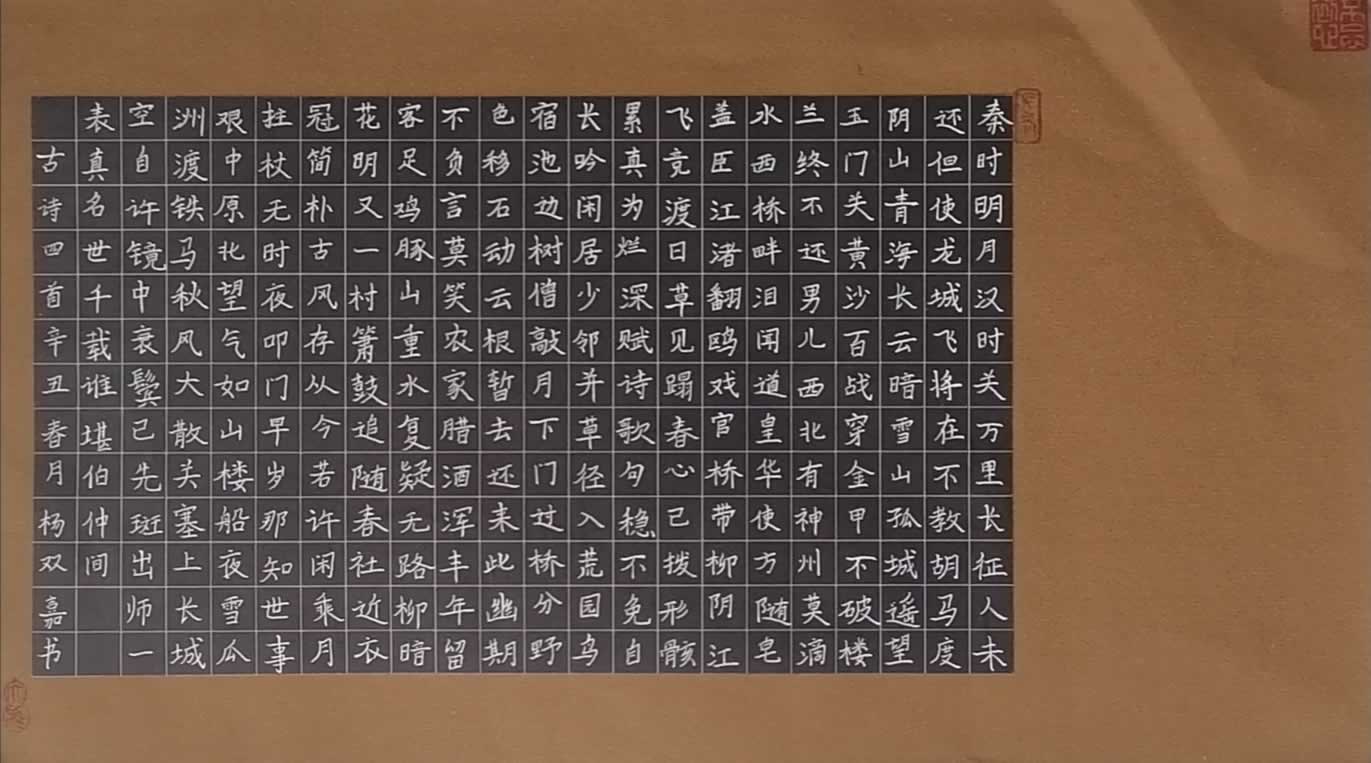 秦时明月汉时关万里长征人未
还但使龙城飞将在不教胡马度
阴山青海长云暗雪山孤城遥望
玉门关黄沙百战穿金甲不破楼
兰终不还男儿西北有神州莫滴
水西桥畔泪闻道皇华使方随皂
盖臣江渚翻鸥戏官桥带柳阴江
飞竞渡日草见蹋春心已拨形骸
累真为烂深赋诗歌句稳不免自
长吟闲居少邻并草径入荒园鸟
宿池边树僧敲月下门过桥分野
色移石动云根暂去还来此幽期
不负言莫笑农家腊酒浑丰年留
客足鸡豚山重水复疑无路柳暗
花明又一村箫鼓追随春社近衣
冠简朴古风存从今若许闲乘月
拄杖无时夜叩门早岁那知世事
艰中原北望气如山楼船夜雪瓜
洲渡铁马秋风大散关塞上长城
空自许镜中衰鬓已先斑出师一
表真名世千载谁堪伯仲间
古诗四首辛丑春月杨双嘉书